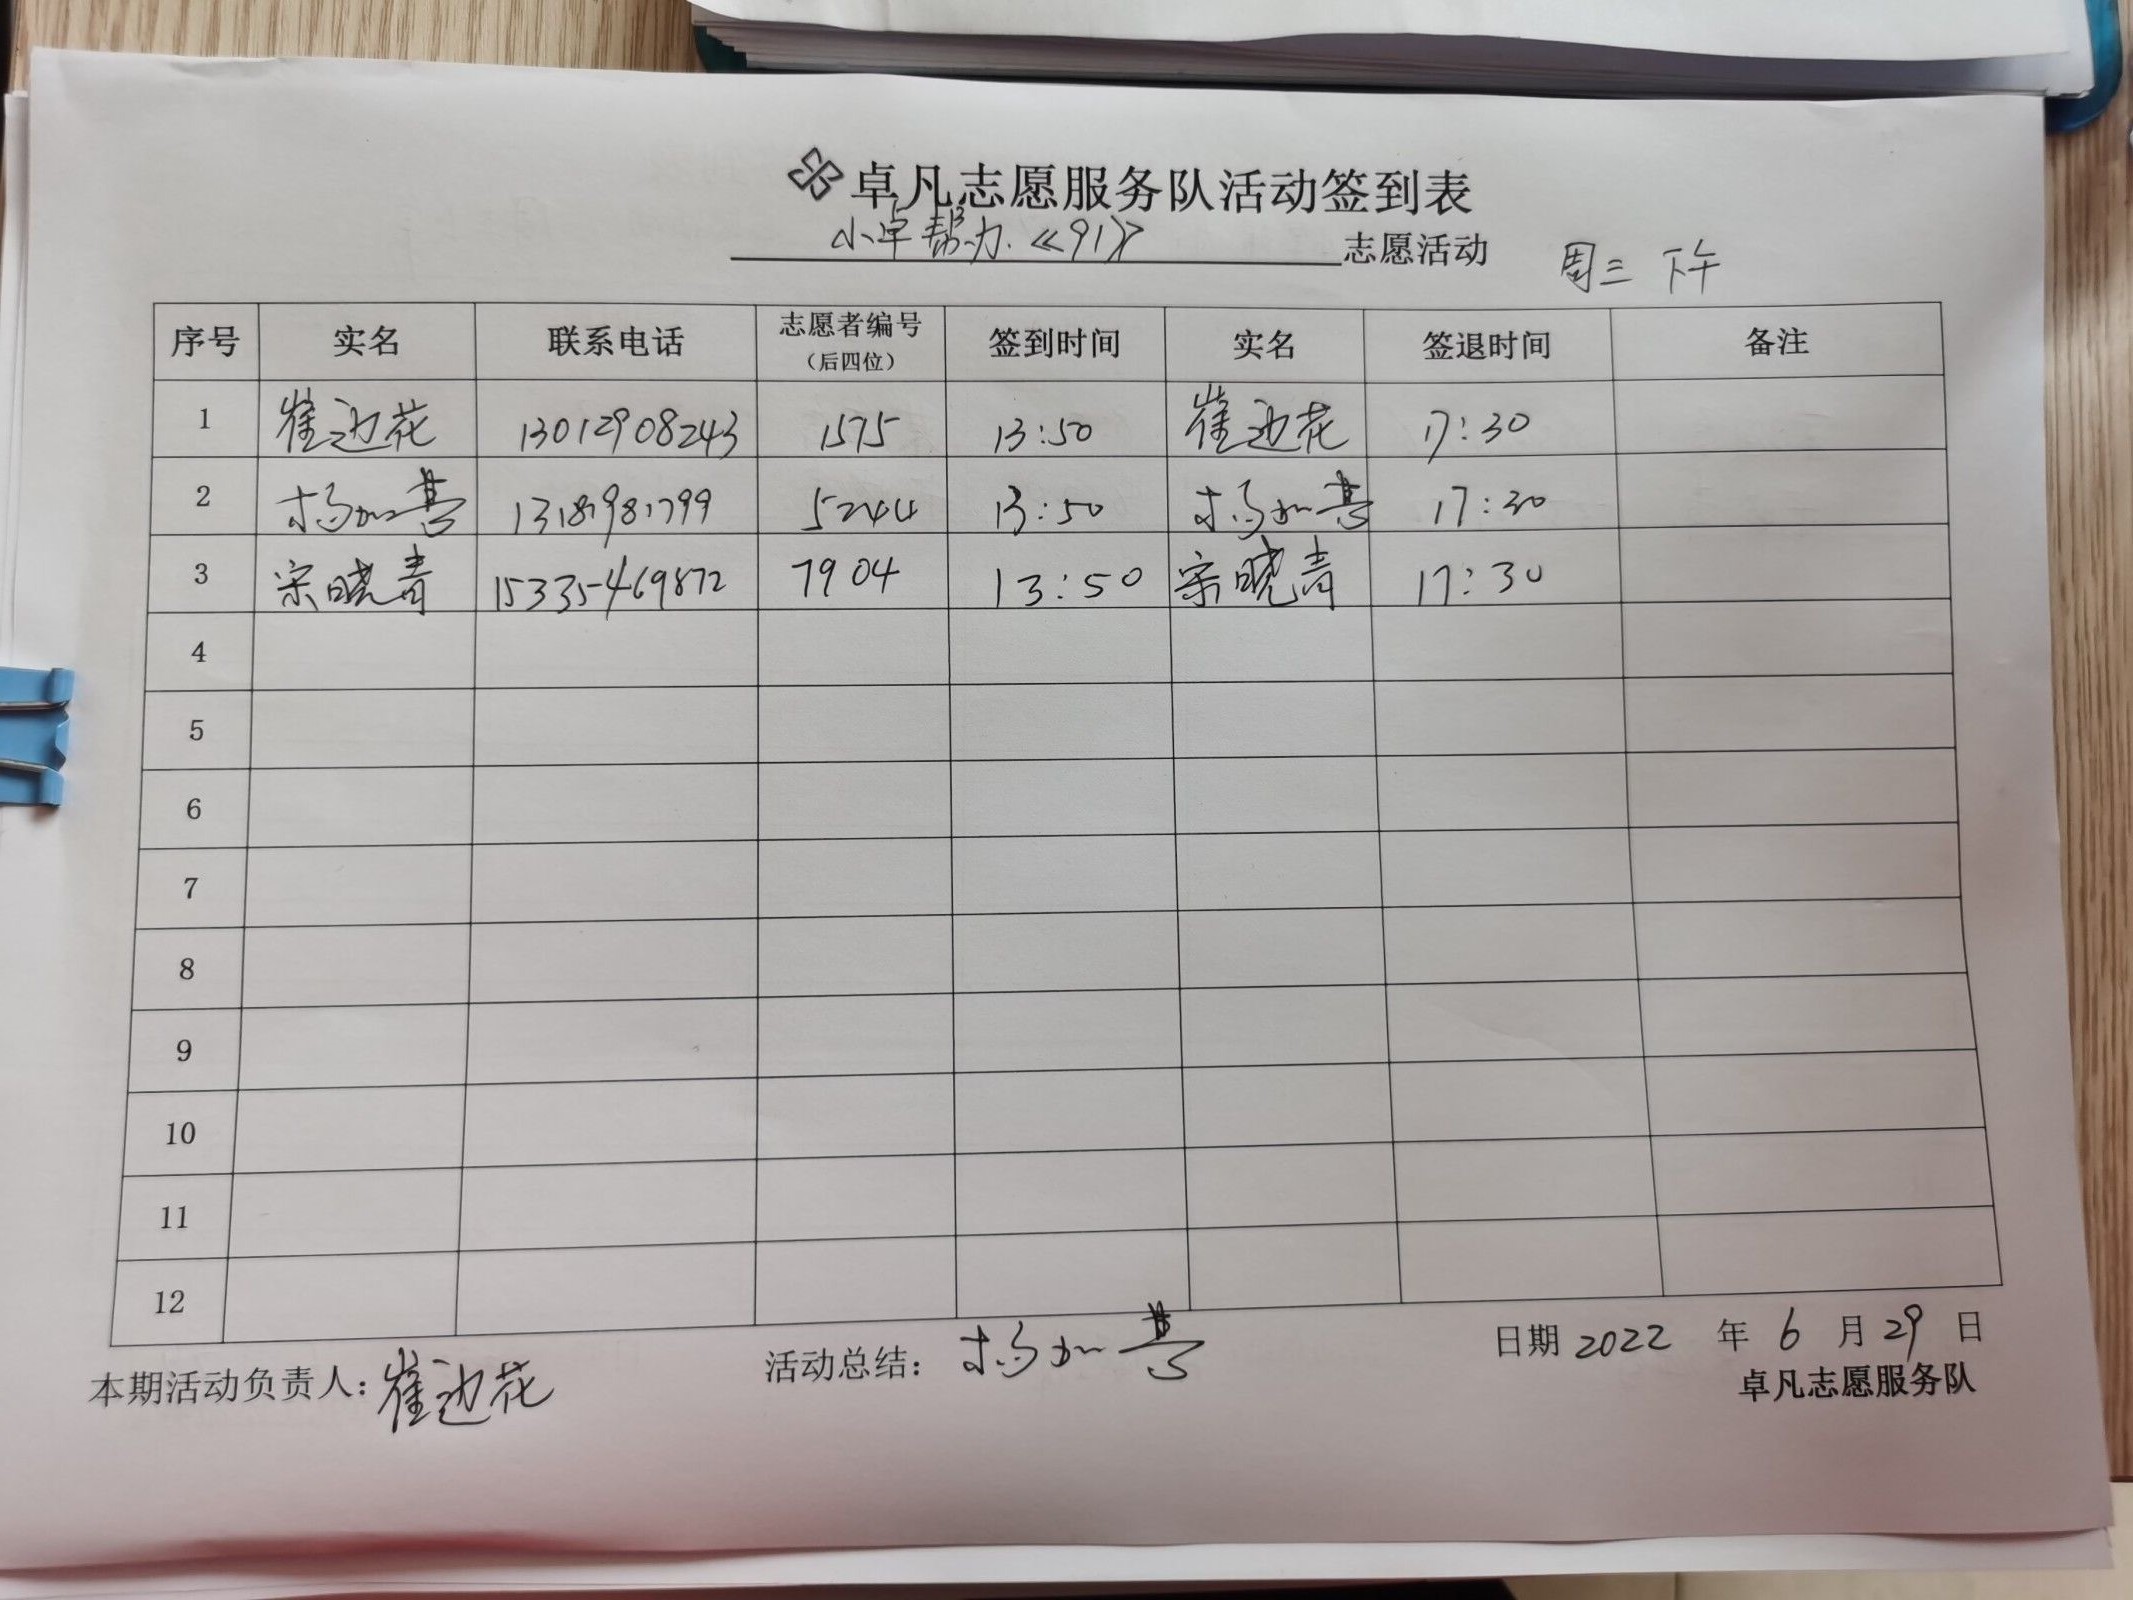 卓凡志愿服务队活动签到表
小卓帮办《91》志愿活动 周三 下午
序号 实名 联系电话 志愿者编号（后四位） 签到时间 实名 签退时间 备注
1 崔边花 13012908243 1575 13:50 崔边花 17:30
2 13181981799 5244 13:50 17:30
3 宋晓青 15335469872 7904 13:50 宋晓青 17:30
4
5
6
7
8
9
10
11
12
本期活动负责人：崔边花 活动总结： 日期 2022 年 6 月 29 日
卓凡志愿服务队